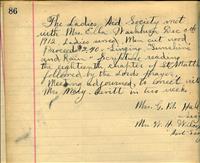 86
The Ladies Aid Society met
with Mrs. Ella Washburgh Dec 5th
1912. Ladies sewed. Men cut
Proceeds $2.90. Singing "Sunshine
and Rain". Scripture reading
the eighteenth chapter of St. Matth
followed by the Lords Prayer.
Meeting adjourned, to meet with
Mrs. Mary in two weeks.
Mrs. G. N.
Mrs. W. H.